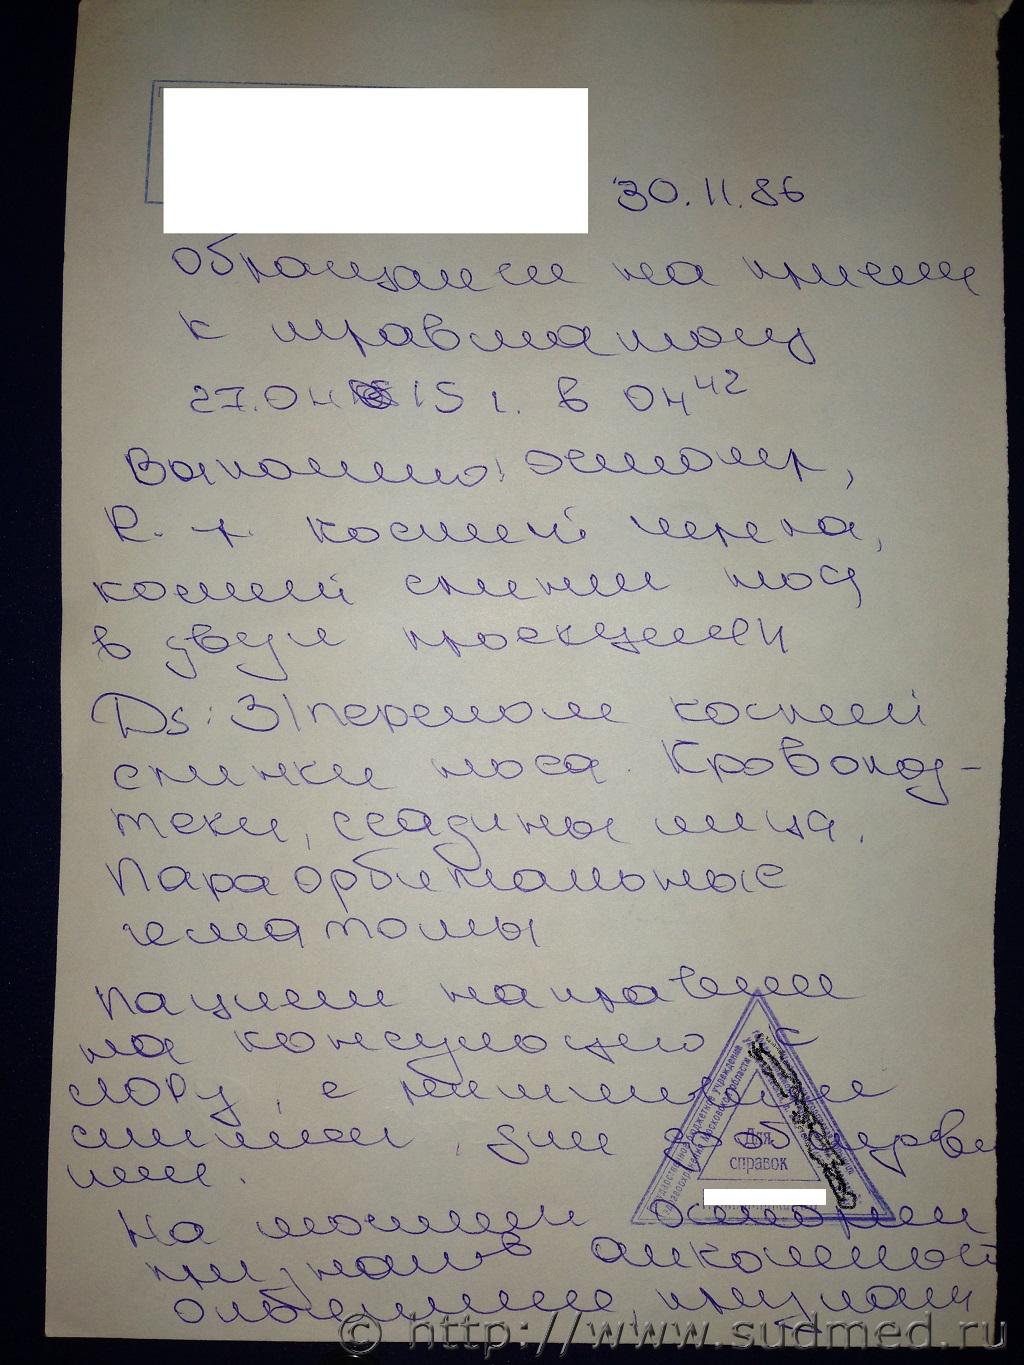 30.11.86
Обращался на прием
к травматологу
27.04 15 г. в 04 42
Выполнено: осмотр,
R-гр. костей черепа,
костей спинки носа
в двух проекциях
Ds: З/перелом костей
спинки носа. Кровопод-
теки, ссадины лица.
Параорбитальные
гематомы
Пациент направлен
на консультацию к
ЛОРу, с
снимками, для
На момент осмотра
признаков алкогольного
опьянения
Государственное бюджетное учреждение
здравоохранения Московской области
Для
справок
© http://www.sudmed.ru